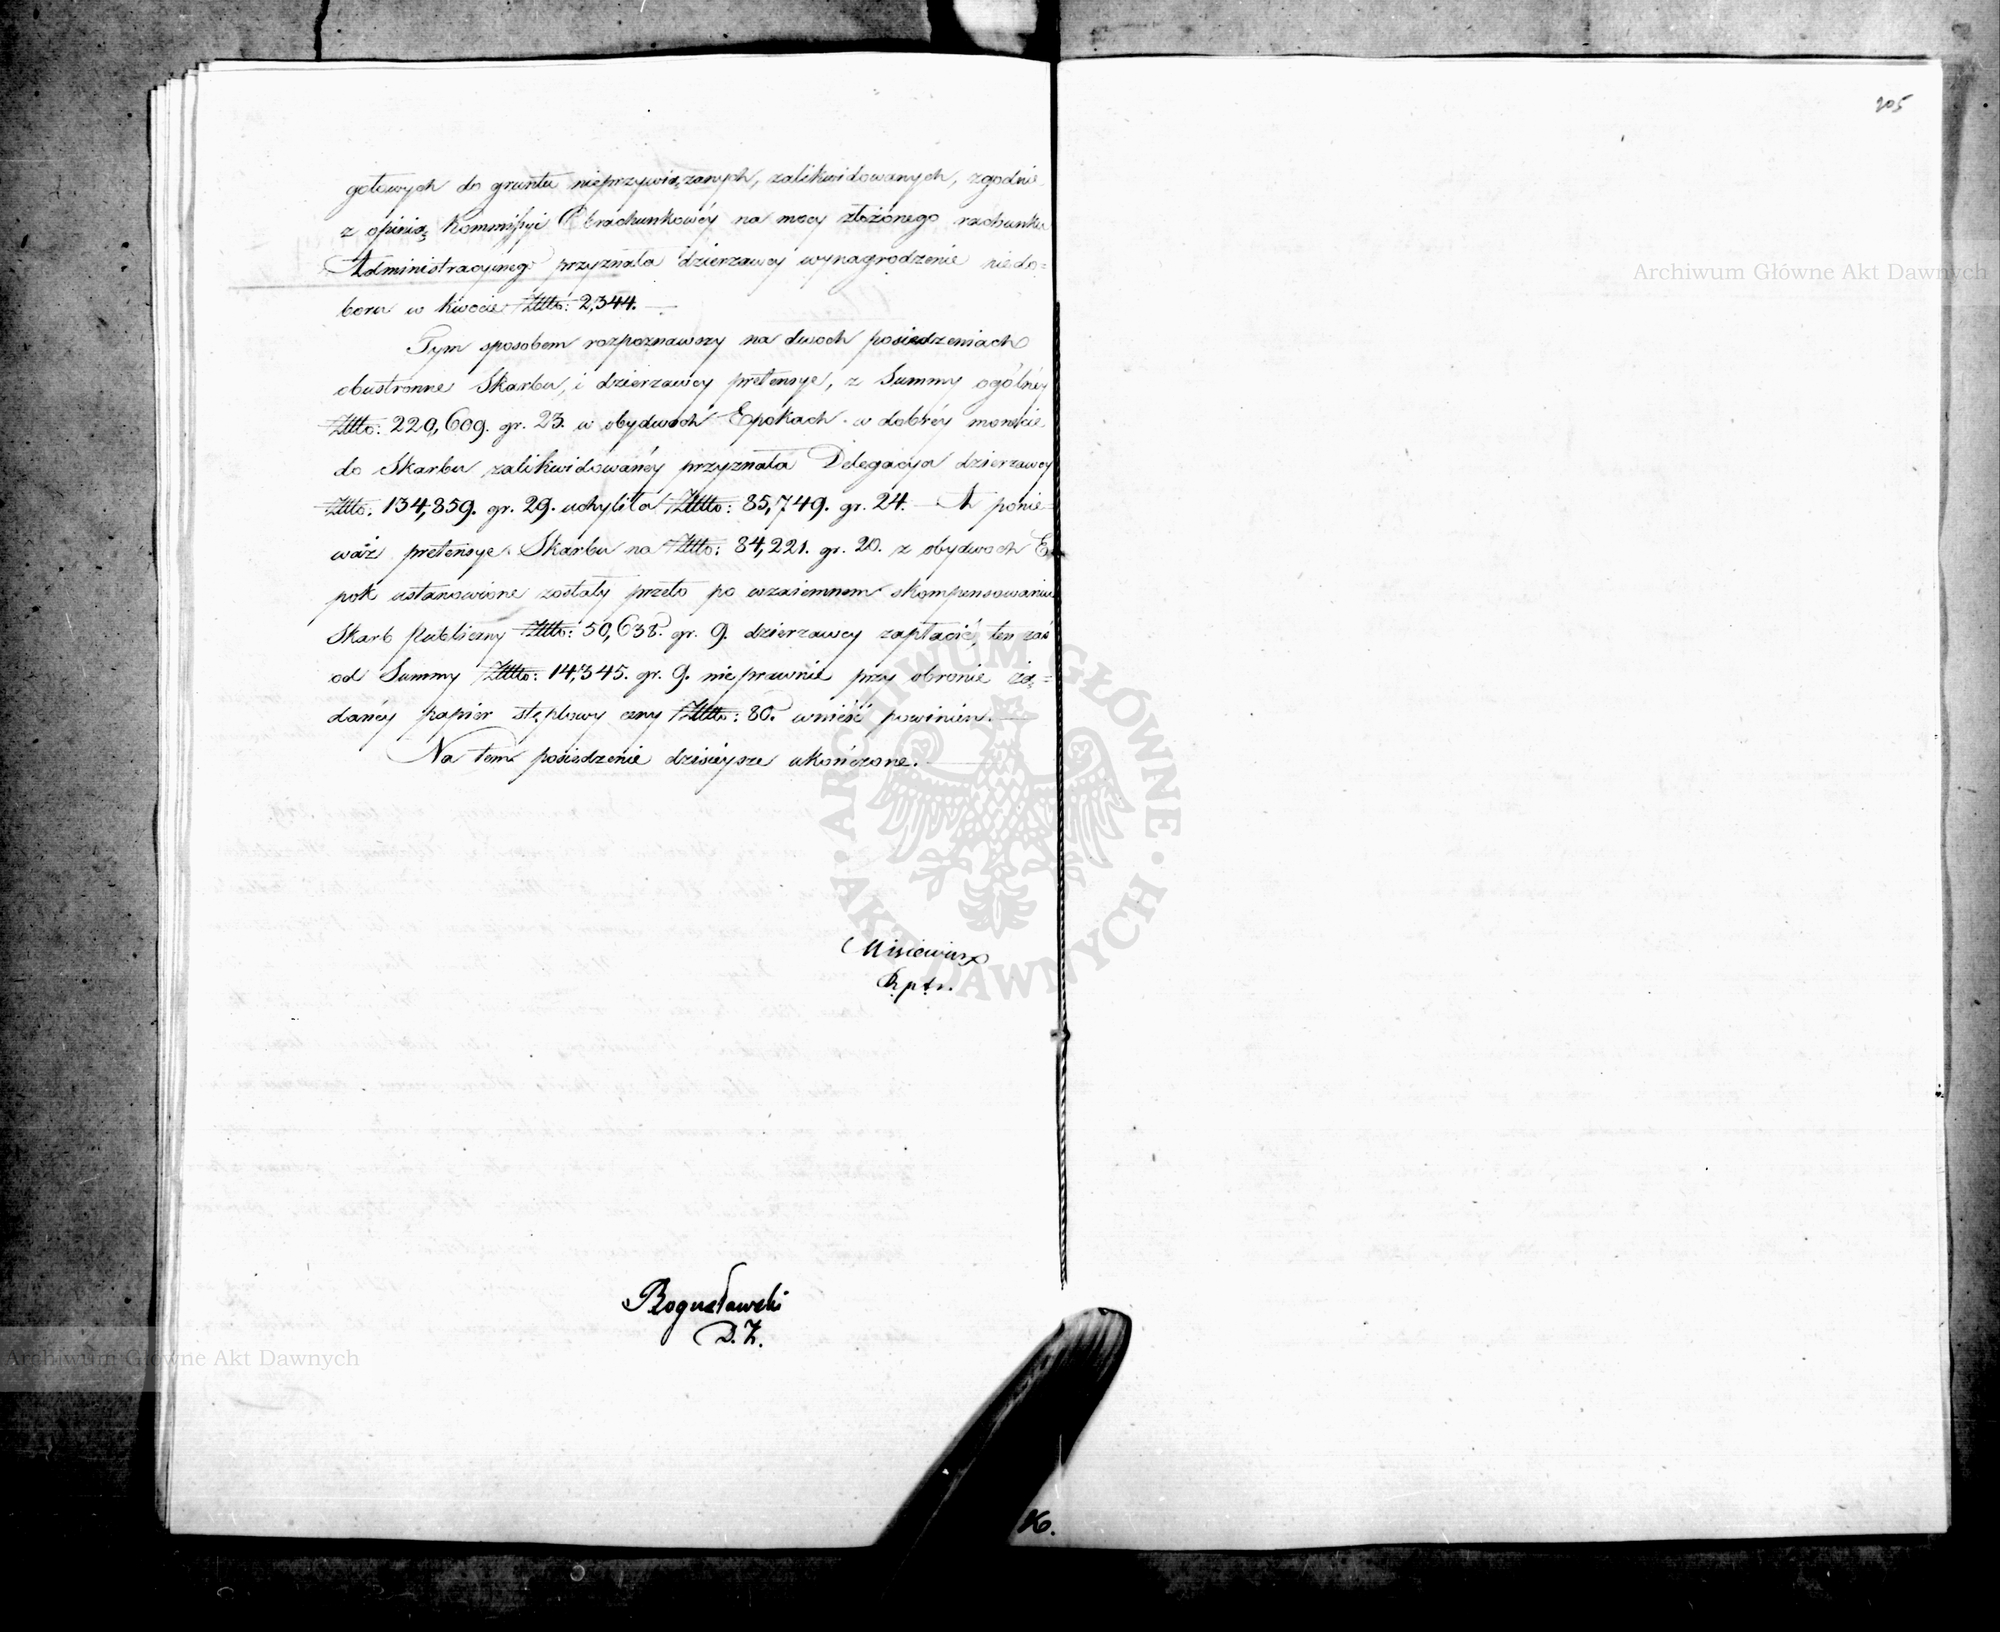 205
gotowych do gruntu nieprzywiązanych, zalikwidowanych, zgodnie
z opinią Kommissyi Obrachunkowéy na mocy złożonego rachunku
Administracyinego przyznała dzierzawcy wynagrodzenie niedo=
boru w kwocie Złtto: 2,344. —
Tym sposobem rozpoznawszy na dwoch posiedzeniach
obustronne Skarbu, i dzierzawcy pretensye, z Summy ogólnéy
Złtto: 220,609. gr. 23. w obydwoch Epokach w dobréy monecie
do Skarbu zalikwidowanéy przyznała Delegacya dzierzawcy
Złtto: 134,859. gr. 29. uchyliła Złtto: 85,749. gr. 24. — A ponie=
waż pretensye Skarbu na Złtto: 84,221. gr. 20. z obydwoch E
pok ustanowione zostały przeto po wzaiemnem skompensowaniu
Skarb Publiczny Złtto: 50,638. gr. 9. dzierzawcy zapłacić, ten zaś
od Summy Złtto: 14,345. gr. 9. nieprawnie przy obronie żą=
danéy papier stęplowy ceny Złtto: 80. wnieść powinien. —
Na tem posiedzenie dzisieysze ukończone. —
Misiewicz
Rptr.
Bogusławski
D. Z.
16.
Archiwum Główne Akt Dawnych
Archiwum Główne Akt Dawnych
ARCHIWUM GŁÓWNE · AKT DAWNYCH ·